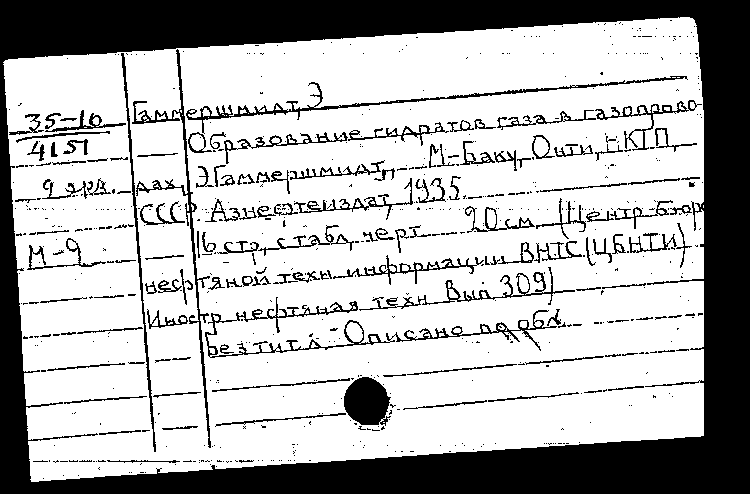 35-10
4151
9 экз.
М-9
Гаммершмидт, Э
Образование гидратов газа в газопрово-
дах, Э Гаммершмидт, М-Баку, Онти, НКТП,
СССР Азнефтеиздат, 1935.
16 стр, с табл, черт 20 см (Центр бюро
нефтяной техн информации ВНТС (ЦБНТИ)
Иностр нефтяная техн Вып 309)
Без тит л. - Описано по обл.